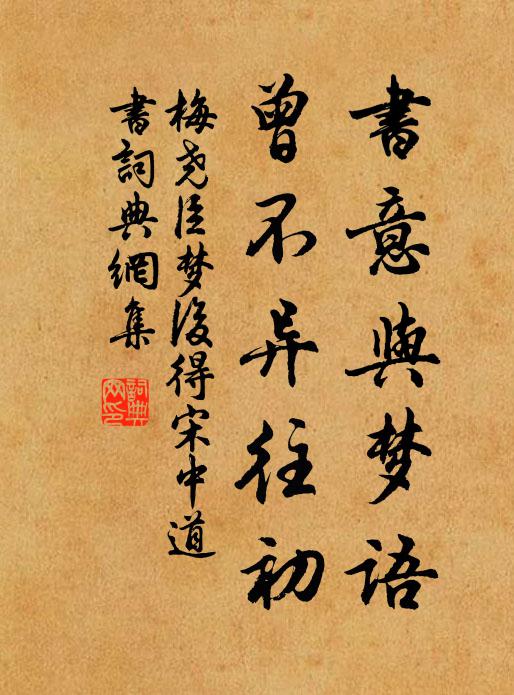 書意與梦语
曾不异往初
梅尧臣梦後得宋中道
書詞典網集
詞典網印